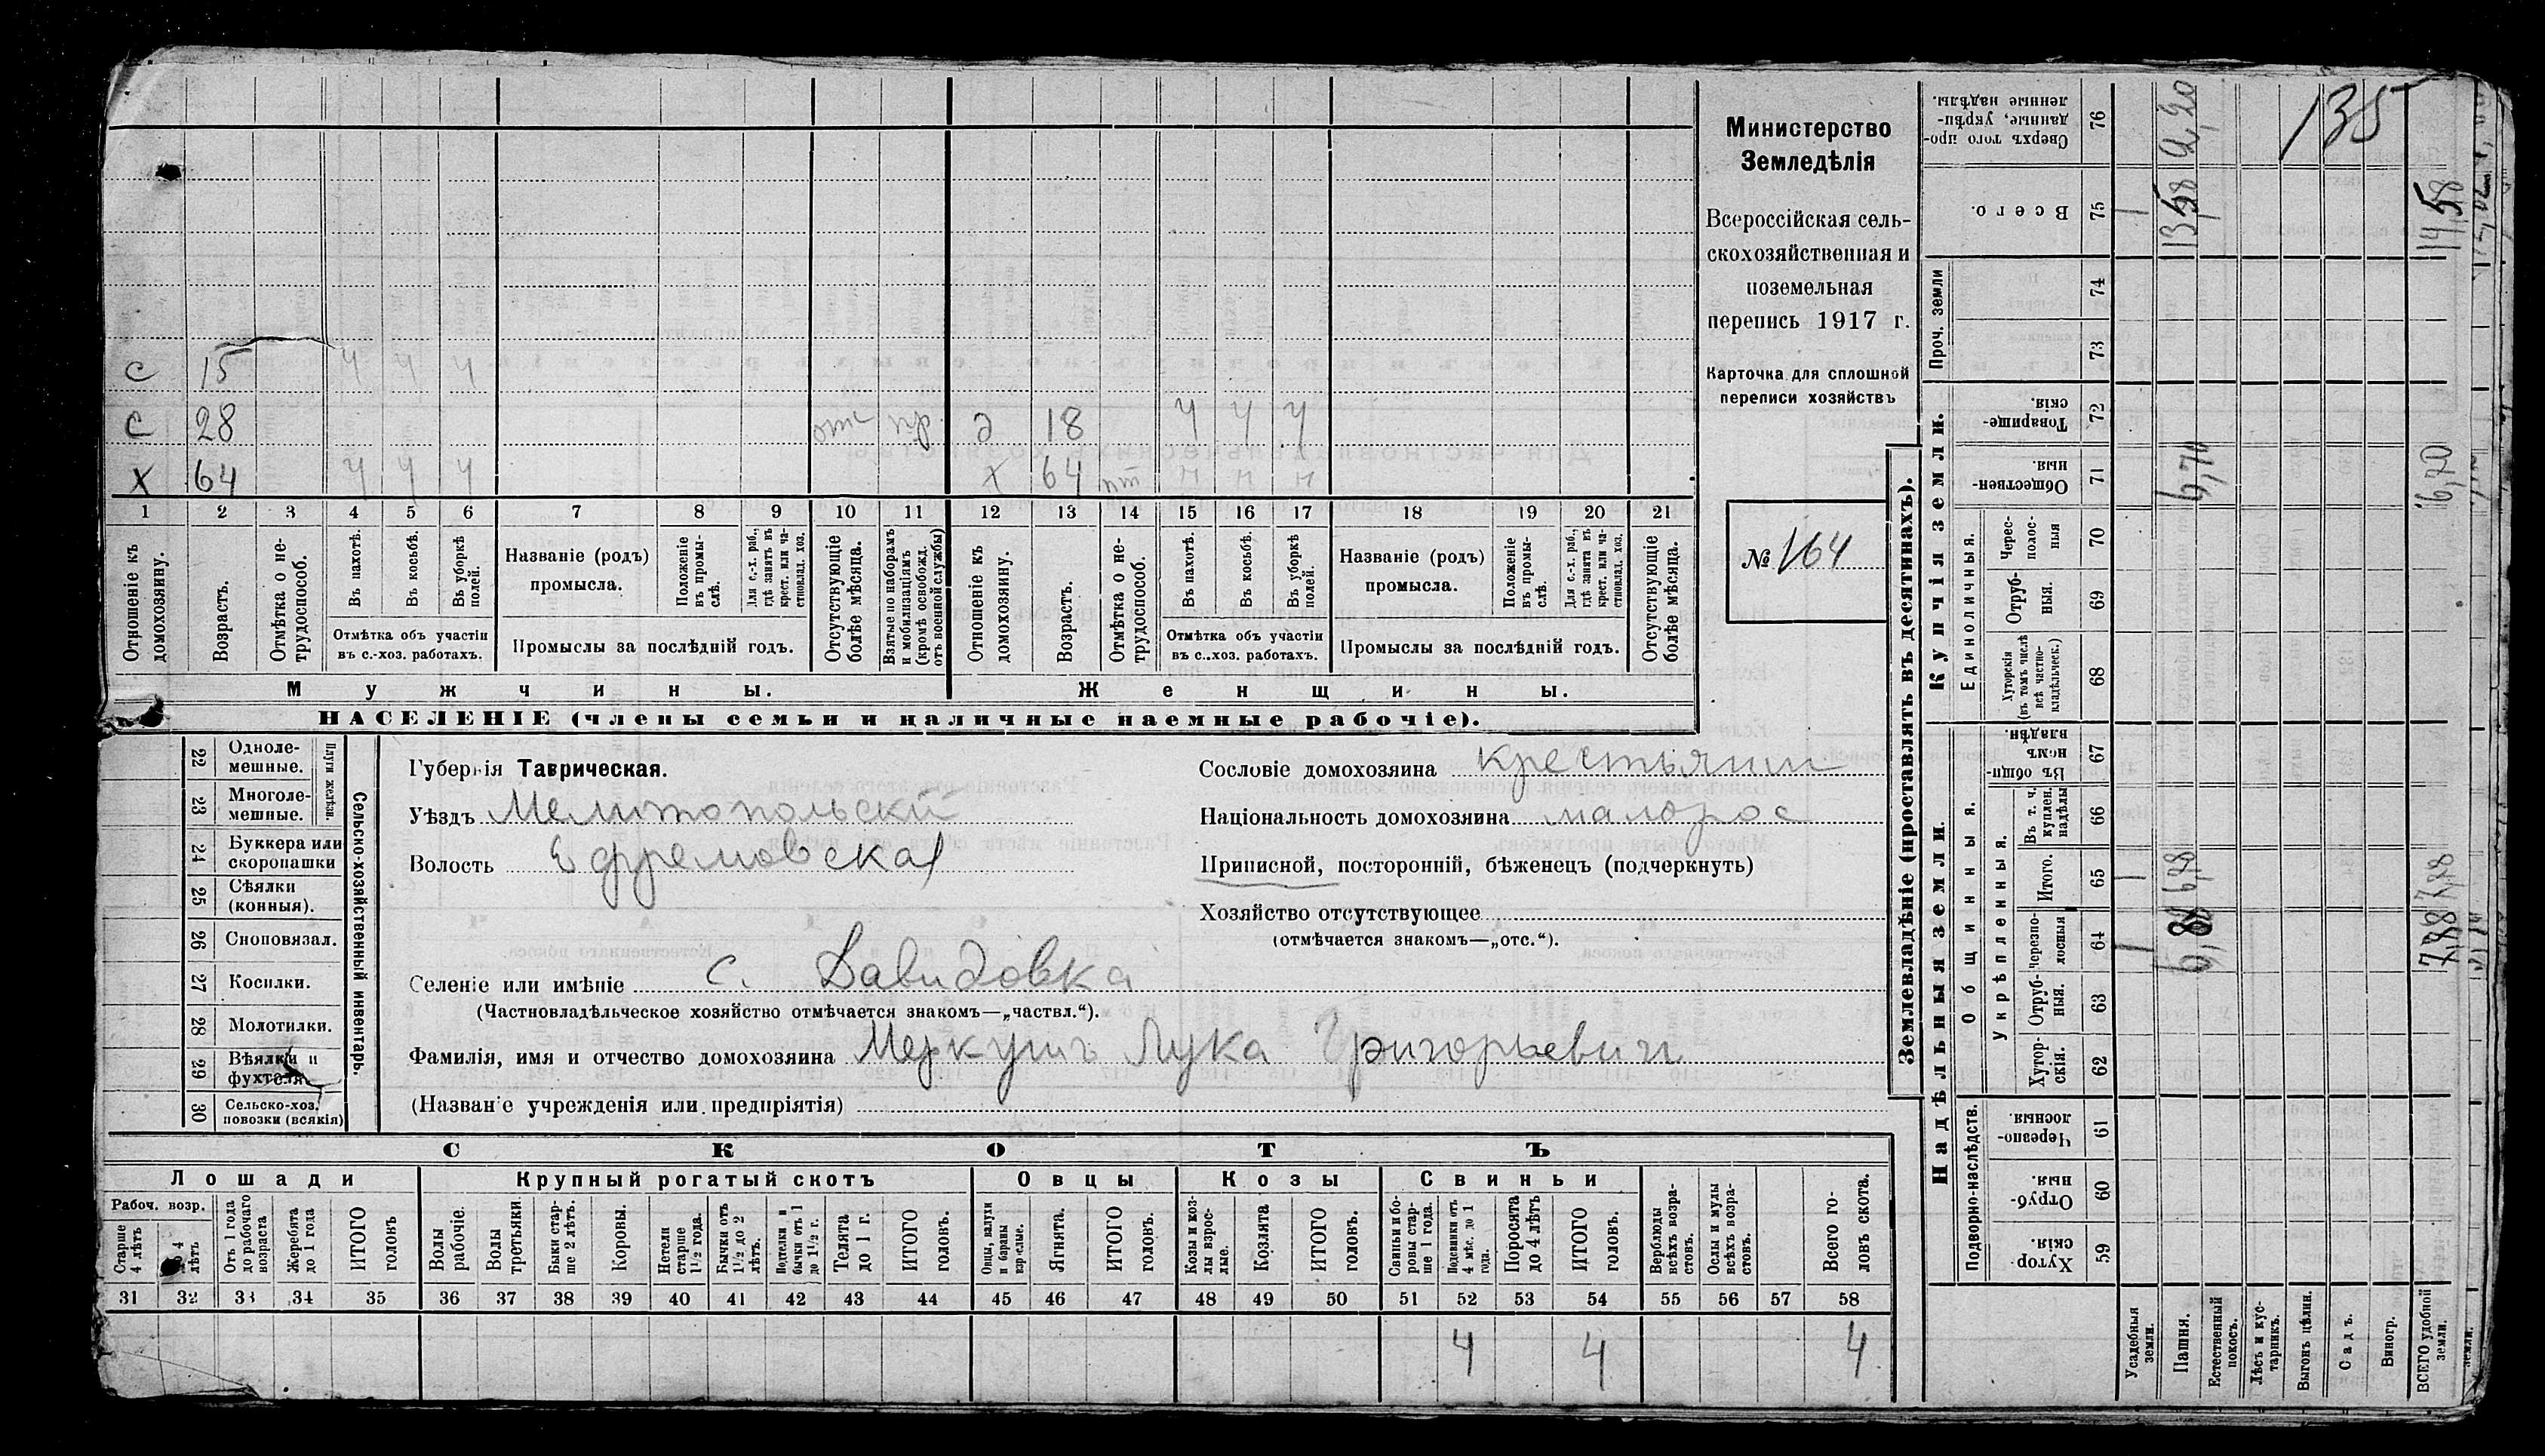 С 15 ч ч ч
С 28 отс пр д 18 ч ч ч
Х 64 ч ч ч Х 64 нт н н н
1 2 3 4 5 6 7 8 9 10 11 12 13 14 15 16 17 18 19 20 21
Отношеніе къ домохозяину.
Возрастъ.
Отмѣтка о нетрудоспособ.
Въ пахотѣ.
Въ косьбѣ.
Въ уборкѣ полей.
Отмѣтка объ участіи
въ с.-хоз. работахъ.
Названіе (родъ)
промысла.
Положеніе въ промыслѣ.
Для с.-х. раб., гдѣ занятъ въ крест. или частновлад. хоз.
Промыслы за послѣдній годъ.
Отсутствующіе болѣе мѣсяца.
Взятые по наборамъ и мобилизаціямъ (кромѣ освобожд. отъ военной службы)
Отношеніе къ домохозяину.
Возрастъ.
Отмѣтка о нетрудоспособ.
Въ пахотѣ.
Въ косьбѣ.
Въ уборкѣ полей.
Отмѣтка объ участіи
въ с.-хоз. работахъ.
Названіе (родъ)
промысла.
Положеніе въ промыслѣ.
Для с.-х. раб., гдѣ занята въ крест. или частновлад. хоз.
Промыслы за послѣдній годъ.
Отсутствующіе болѣе мѣсяца.
Мужчины. Женщины.
НАСЕЛЕНІЕ (члены семьи и наличные наемные рабочіе).
Министерство
Земледѣлія
Всероссійская сель-
скохозяйственная и
поземельная
перепись 1917 г.
Карточка для сплошной
переписи хозяйствъ
№ 164
Сельско-хозяйственный инвентарь.
Плуги желѣзн.
22 Одноле-
мешные.
23 Многоле-
мешные.
24 Буккера или
скоропашки
25 Сѣялки
(конныя).
26 Сноповязал.
27 Косилки.
28 Молотилки.
29 Вѣялки и
фухтеля.
30 Сельско-хоз.
повозки (всякія)
Губернія Таврическая.
Уѣздъ Мелитопольскій
Волость Ефремовская
Селеніе или имѣніе с. Давидовка
(Частновладѣльческое хозяйство отмѣчается знакомъ—„частвл.“).
Фамилія, имя и отчество домохозяина Меркушъ Лука Григорьевич
(Названіе учрежденія или предпріятія)
Сословіе домохозяина крестьянин
Національность домохозяина малорос
Приписной, посторонній, бѣженецъ (подчеркнуть)
Хозяйство отсутствующее
(отмѣчается знакомъ—„отс.“).
СКОТЪ
Лошади Крупный рогатый скотъ Овцы Козы Свиньи
Рабоч. возр.
Старше 4 лѣтъ
До 4 лѣтъ
Отъ 1 года до рабочаго возраста
Жеребята до 1 года
ИТОГО головъ
Волы рабочіе.
Волы третьяки.
Быки старше 2 лѣтъ.
Коровы.
Нетели старше 1½ года.
Бычки отъ 1½ до 2 лѣтъ.
Подтелки и бычки отъ 1 до 1½ г.
Телята до 1 г.
ИТОГО головъ.
Овцы, валухи и бараны взрослые.
Ягнята.
ИТОГО головъ.
Козы и козлы взрослые.
Козлята
ИТОГО головъ.
Свиньи и боровы старше 1 года.
Подсвинки отъ 4 мѣс. до 1 года.
Поросята до 4 лѣтъ
ИТОГО головъ.
Верблюды всѣхъ возрастовъ.
Ослы и мулы всѣхъ возрастовъ.
Всего головъ скота.
31 32 33 34 35 36 37 38 39 40 41 42 43 44 45 46 47 48 49 50 51 52 53 54 55 56 57 58
4 4 4
Землевладѣніе (проставлять въ десятинахъ).
Надѣльныя земли. Купчія земли. Проч. земли
Подворно-наслѣдств.
Общинныя.
Укрѣпленныя.
Единоличныя.
Сверхъ того проданные, укрѣпленные надѣлы. 76
Всего. 75
74
73
Товарищескія. 72
Общественныя. 71
Чересполосныя 70
Отрубныя. 69
Хуторскія (въ томъ числѣ всѣ частновладѣльческ.) 68
Въ общинномъ владѣн. 67
Въ т. ч. куплен. надѣлы 66
Итого. 65
Черезполосныя 64
Отрубныя. 63
Хуторскія. 62
Черезполосныя 61
Отрубныя. 60
Хуторскія. 59
Усадебныя земли. 1 1 1
Пашня. 6,88 6,88 6,70 13,58 2,20
Естественный покосъ.
Лѣсъ и кустарникъ.
Выгонъ цѣлин.
Садъ.
Виногр.
ВСЕГО удобной земли. 7,88 7,88 6,70 14,58
земли.
135